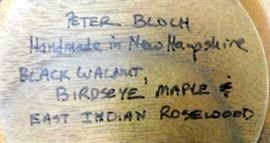 PETER BLOCH
Handmade in New Hampshire
BLACK WALNUT,
BIRDSEYE MAPLE &
EAST INDIAN ROSEWOOD